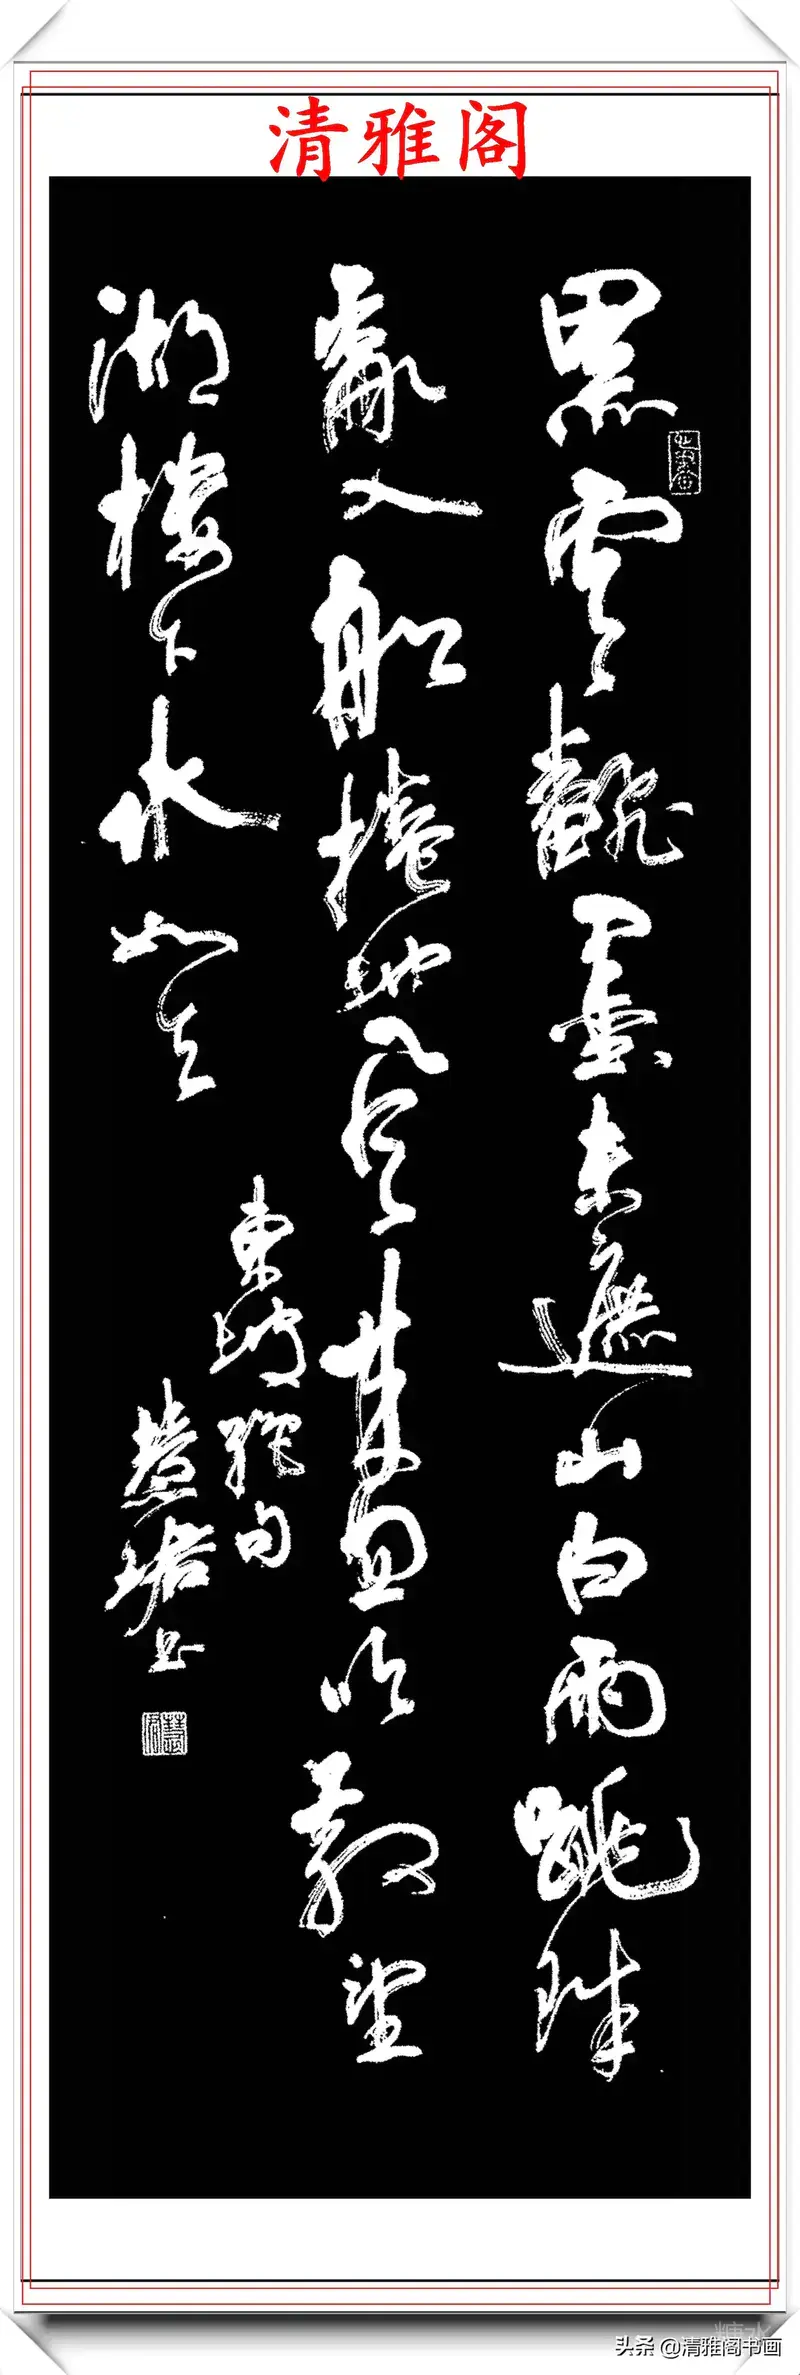 清雅阁
黑雲飜墨未遮山白雨跳珠
亂入船捲地風來忽吹散望
湖樓下水如天
東坡絕句
慧珺书
头条 @清雅阁书画